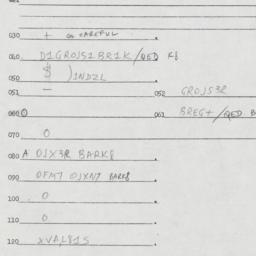 030 + GO CAREFUL
040 D1GROJS1BR1K/QED K8
050 $ )1NDZL
051 —
052 GROJS3R
060 0
061 BREG+/QED B
070 0
080 A OJX3R BARK8
090 OFM7 OJXN7 BARK8
100 0
110 0
120 XVAL81S